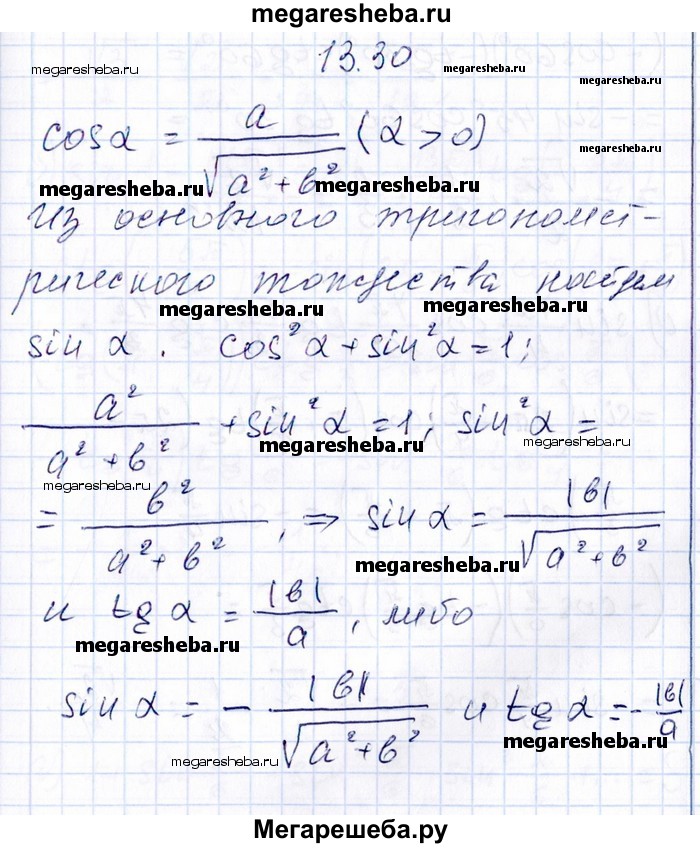 megaresheba.ru
13.30
megaresheba.ru megaresheba.ru megaresheba.ru
cos α = a / √(a² + b²) (α > 0)
megaresheba.ru megaresheba.ru megaresheba.ru
Из основного тригономет-
рического тождества найдем
megaresheba.ru megaresheba.ru
sin α. cos²α + sin²α = 1;
a² / (a² + b²) + sin²α = 1; sin²α =
megaresheba.ru megaresheba.ru megaresheba.ru
= b² / (a² + b²), ⇒ sin α = |b| / √(a² + b²)
megaresheba.ru
и tg α = |b| / a, либо
megaresheba.ru megaresheba.ru
sin α = - |b| / √(a² + b²) и tg α = - |b| / a
megaresheba.ru megaresheba.ru
Мегарешеба.ру